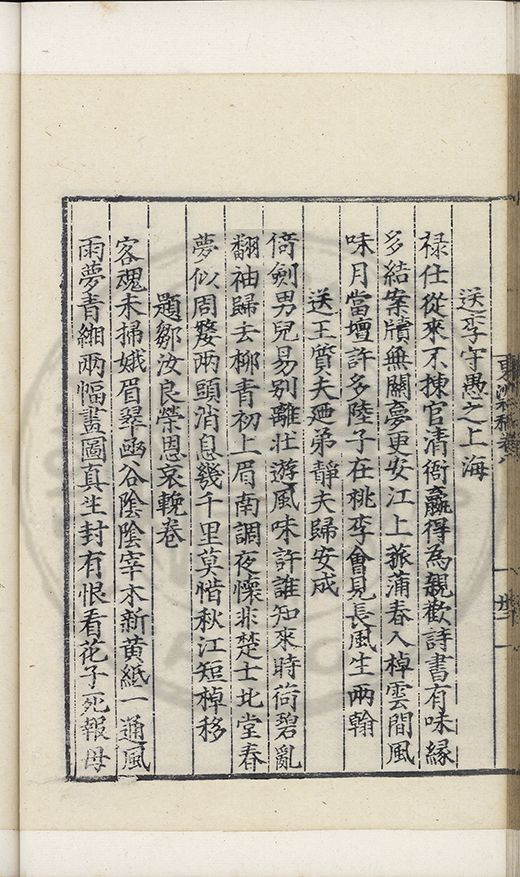 送李守愚之上海
祿仕從來不揀官清銜贏得為親歡詩書有味緣
多結案牘無關夢更安江上菰蒲春入棹雲間風
味月當壇許多陸子在桃李會見長風生兩翰
送王質夫廼弟靜夫歸安成
倚劍男兒易別離壯遊風味許誰知來時荷碧亂
翻袖歸去柳青初上眉南調夜懷非楚士北堂春
夢似周嫠兩頭消息幾千里莫惜秋江短棹移
題鄒汝良榮恩哀輓卷
客魂未掃娥眉翠函谷陰陰宰木新黃紙一通風
雨夢青緗兩幅畫圖真生封有恨看花子死報母